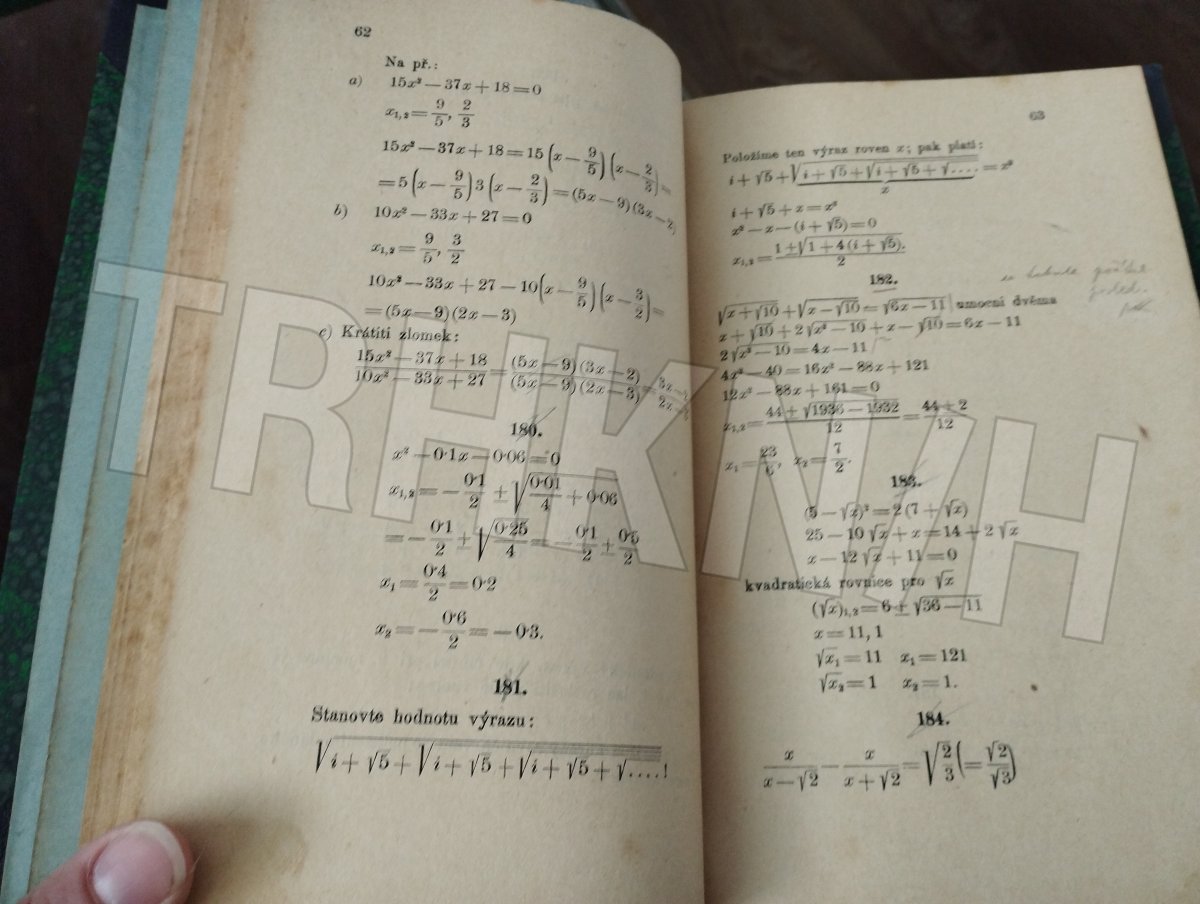 62
Na př.:
a) 15x² — 37x + 18 = 0
x₁,₂ = 9/5, 2/3
15x² — 37x + 18 = 15 (x — 9/5) (x — 2/3) =
= 5 (x — 9/5) 3 (x — 2/3) = (5x — 9) (3x — 2)
b) 10x² — 33x + 27 = 0
x₁,₂ = 9/5, 3/2
10x² — 33x + 27 — 10 (x — 9/5) (x — 3/2) =
= (5x — 9) (2x — 3)
c) Krátiti zlomek:
(15x² — 37x + 18)/(10x² — 33x + 27) = ((5x — 9) (3x — 2))/((5x — 9) (2x — 3)) = (3x — 2)/(2x — 3)
180.
x² — 0·1x — 0·06 = 0
x₁,₂ = — 0·1/2 ± √(0·01/4 + 0·06)
= — 0·1/2 ± √(0·25/4) = — 0·1/2 ± 0·5/2
x₁ = 0·4/2 = 0·2
x₂ = — 0·6/2 = — 0·3.
181.
Stanovte hodnotu výrazu:
√(i + √5 + √(i + √5 + √(i + √5 + √....!
63
Položíme ten výraz roven x; pak platí:
i + √5 + √(i + √5 + √(i + √5 + √.... = x²
x
i + √5 + x = x²
x² — x — (i + √5) = 0
x₁,₂ = (1 ± √(1 + 4 (i + √5)))/2.
182.
√(x + √10) + √(x — √10) = √(6x — 11) | umocní dvěma
x + √10 + 2 √(x² — 10) + x — √10 = 6x — 11
2 √(x² — 10) = 4x — 11
4x² — 40 = 16x² — 88x + 121
12x² — 88x + 161 = 0
x₁,₂ = (44 ± √(1936 — 1932))/12 = (44 ± 2)/12
x₁ = 23/6, x₂ = 7/2.
183.
(5 — √x)² = 2 (7 + √x)
25 — 10 √x + x = 14 + 2 √x
x — 12 √x + 11 = 0
kvadratická rovnice pro √x
(√x)₁,₂ = 6 ± √(36 — 11)
x = 11, 1
√x₁ = 11 x₁ = 121
√x₂ = 1 x₂ = 1.
184.
x/(x — √2) — x/(x + √2) = √(2/3) (= √2/√3)
TRHKNIH